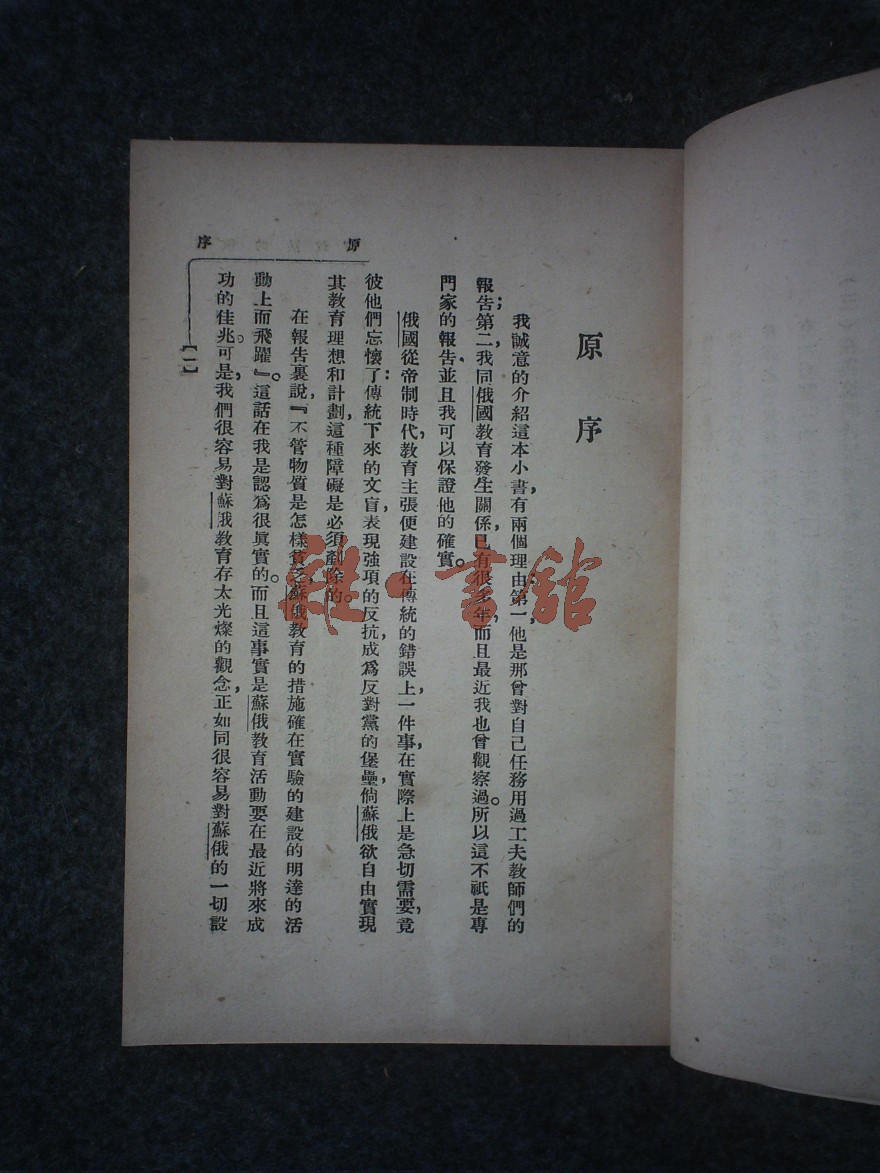 原序
原序
我誠意的介紹這本小書，有兩個理由：第一，他是那曾對自己任務用過工夫教師們的
報告；第二，我同俄國教育發生關係，已有很多年，而且最近我也曾觀察過。所以這不祇是專
門家的報告，並且我可以保證他的確實。
俄國從帝制時代，教育主張便建設在傳統的錯誤上，一件事，在實際上是急切需要，竟
彼他們忘懷了：傳統下來的文盲，表現強項的反抗，成爲反對黨的堡壘，倘蘇俄欲自由實現
其教育理想和計劃，這種障礙是必須剷除的。
在報告裏說，『不管物質是怎樣貧乏，蘇俄教育的措施確在實驗的建設的明達的活
動上而飛躍』。這話在我是認爲很眞實的。而且這事實是蘇俄教育活動要在最近將來成
功的佳兆。可是，我們很容易對蘇俄教育存太光燦的觀念，正如同很容易對蘇俄的一切設
【一】
雜·書館